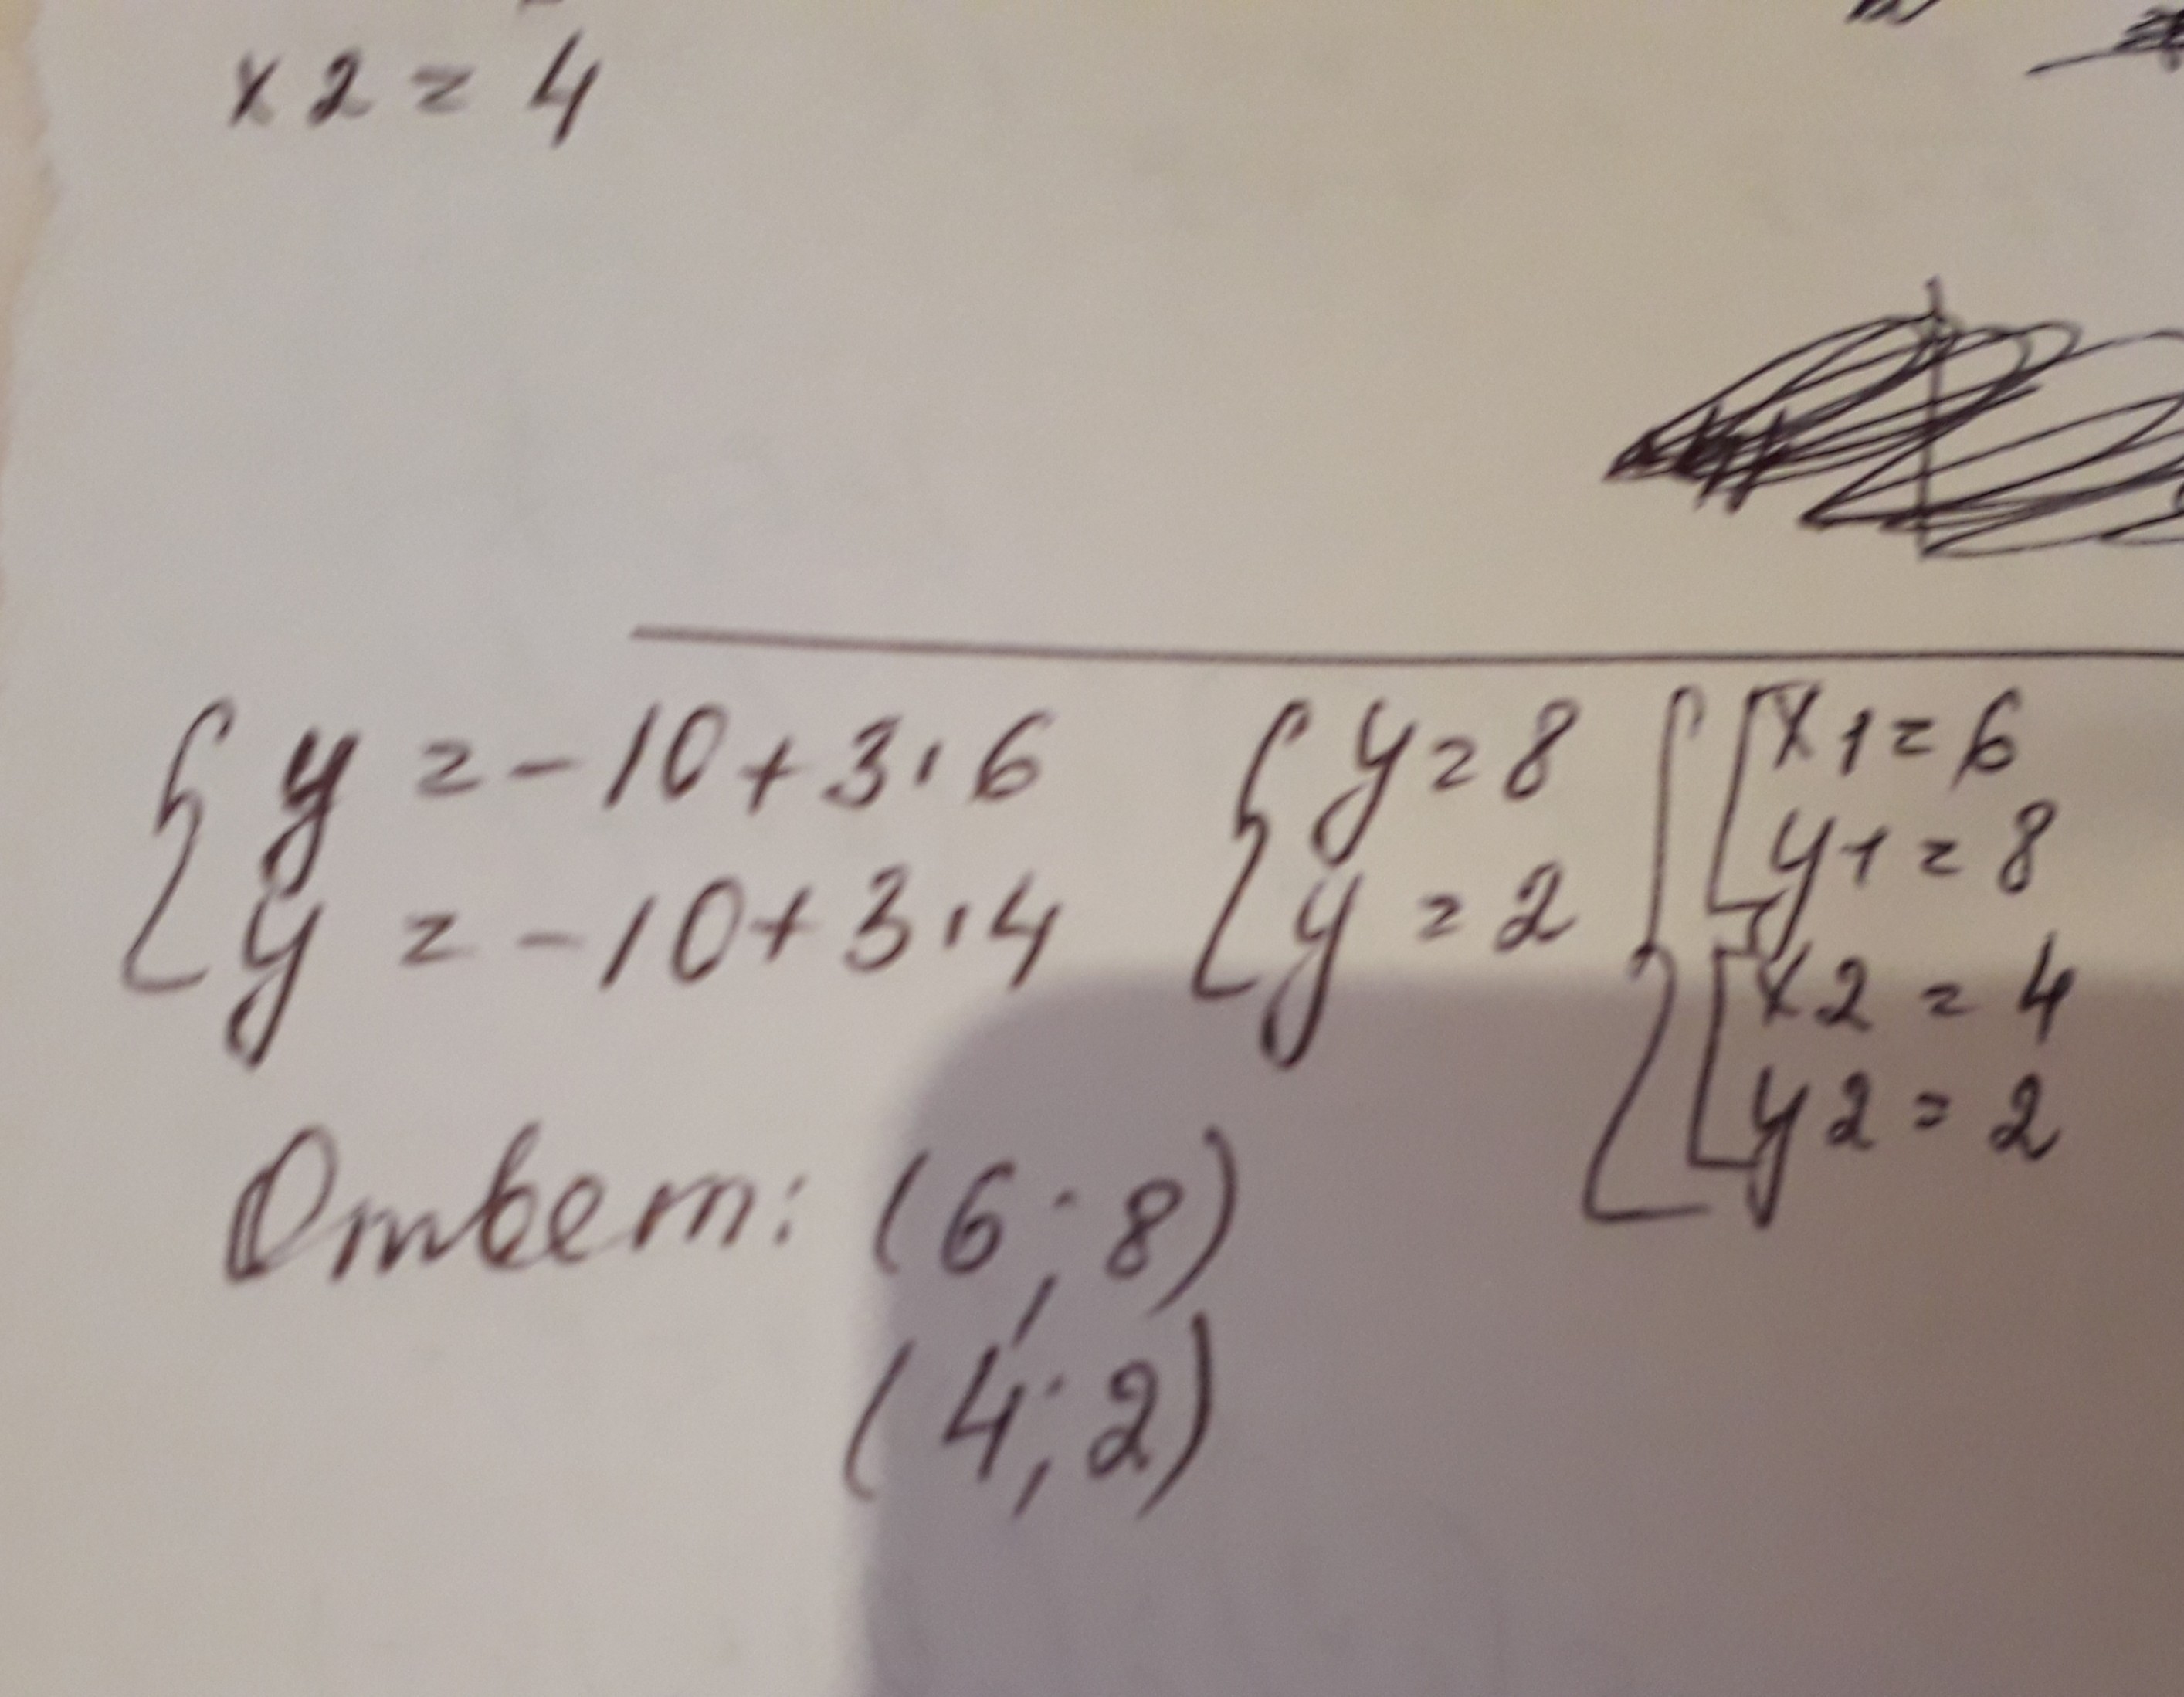 x2 = 4
y = -10 + 3·6
y = -10 + 3·4
y = 8
y = 2
x1 = 6
y1 = 8
x2 = 4
y2 = 2
Ответ: (6; 8)
(4; 2)